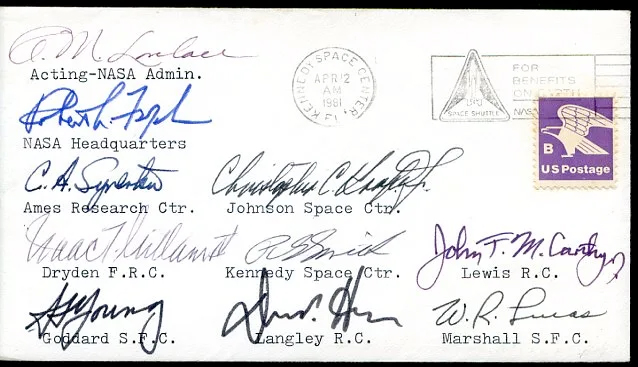 A. M. Lovelace
Acting-NASA Admin.
KENNEDY SPACE CENTER, FL
APR 12
AM
1981
SPACE SHUTTLE
FOR
BENEFITS
ON EARTH
NASA
B
US Postage
Robert
NASA Headquarters
C. A. Syvertson
Ames Research Ctr.
Christopher C. Kraft, Jr.
Johnson Space Ctr.
Isaac T. Gillam IV
Dryden F.R.C.
R G Smith
Kennedy Space Ctr.
John F. McCarthy Jr
Lewis R.C.
Young
Goddard S.F.C.
Langley R.C.
W. R. Lucas
Marshall S.F.C.